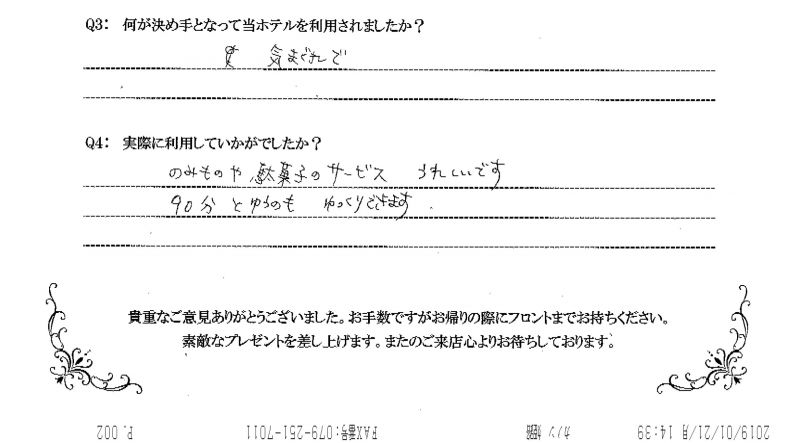 Q3: 何が決め手となって当ホテルを利用されましたか？
気まぐれで
Q4: 実際に利用していかがでしたか？
のみものや駄菓子のサービス うれしいです
90分とゆうのも ゆっくりできます.
貴重なご意見ありがとうございました。お手数ですがお帰りの際にフロントまでお持ちください。
素敵なプレゼントを差し上げます。またのご来店心よりお待ちしております。
2019/01/21/月 14:39 カノン FAX番号:079-251-7011 P. 002